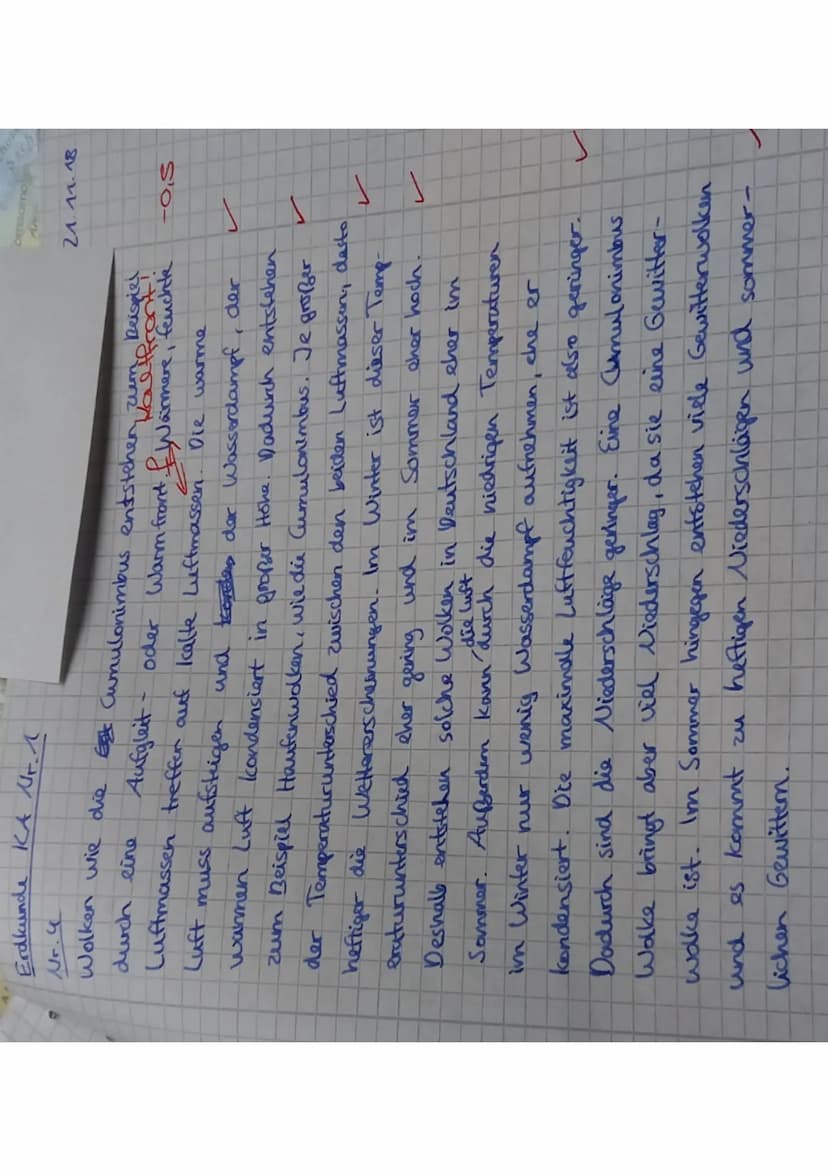 Erdkunde KA Nr. 1
21.11.18
Nr. 4
Wolken wie die Cumulonimbus entstehen zum Beispiel
durch eine Aufgleit- oder Warmfront. Wärmere, feuchte
Kaltfront!
-0,5
Luftmassen treffen auf kalte Luftmassen. Die warme
Luft muss aufsteigen und der Wasserdampf, der
warmen Luft kondensiert in großer Höhe. Dadurch entstehen
zum Beispiel Haufenwolken, wie die Cumulonimbus. Je größer
der Temperaturunterschied zwischen den beiden Luftmassen, desto
heftiger die Wettererscheinungen. Im Winter ist dieser Temp-
eraturunterschied eher gering und im Sommer eher hoch.
Deshalb entstehen solche Wolken in Deutschland eher im
Sommer. Außerdem kann die Luft durch die niedrigen Temperaturen
im Winter nur wenig Wasserdampf aufnehmen, ehe er
kondensiert. Die maximale Luftfeuchtigkeit ist also geringer.
Dadurch sind die Niederschläge geringer. Eine Cumulonimbus
Wolke bringt aber viel Niederschlag, da sie eine Gewitter-
wolke ist. Im Sommer hingegen entstehen viele Gewitterwolken
und es kommt zu heftigen Niederschlägen und sommer-
lichen Gewittern.